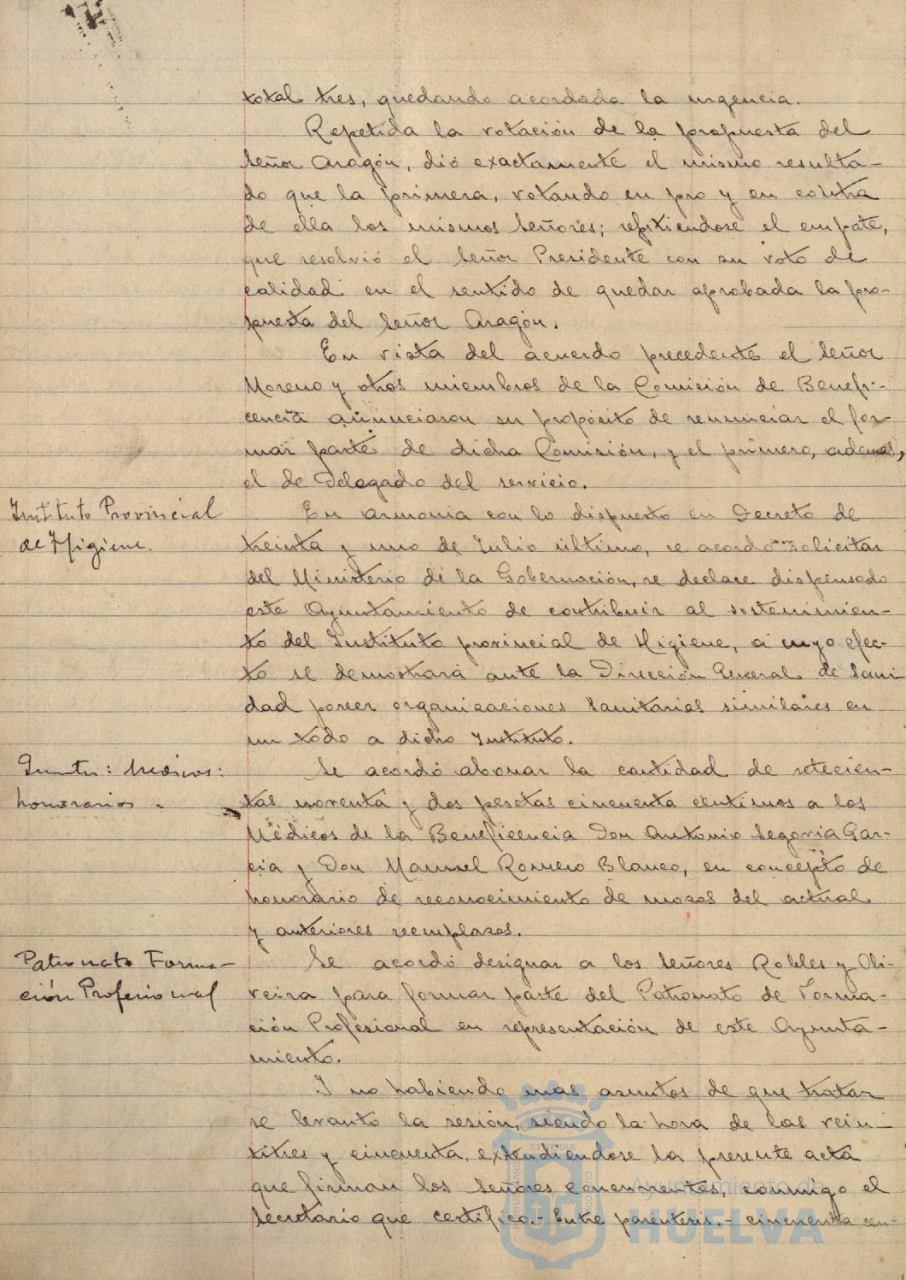 total tres, quedando acordada la urgencia.
Repetida la votación de la propuesta del
Señor Aragón, dió exactamente el mismo resulta-
do que la primera, votando en pro y en contra
de ella los mismos Señores; repitiendose el empate,
que resolvió el Señor Presidente con su voto de
calidad en el sentido de quedar aprobada la pro-
puesta del Señor Aragón.
En vista del acuerdo precedente el Señor
Moreno y otros miembros de la Comisión de Benefi-
cencia anunciaron su propósito de renunciar el for-
mar parte de dicha Comisión, y el primero, ademas,
el de Delegado del servicio.
Instituto Provincial
de Higiene.
En armonia con lo dispuesto en Decreto de
treinta y uno de Julio último, se acordó solicitar
del Ministerio de la Gobernación, se declare dispensado
este Ayuntamiento de contribuir al sostenimien-
to del Instituto provincial de Higiene, a cuyo efec-
to se demostrará ante la Dirección General de Sani
dad poseer organizaciones sanitarias similares en
un todo a dicho Instituto.
Médicos:
honorarios.
Se acordó abonar la cantidad de setecien-
tas noventa y dos pesetas cincuenta centimos a los
Médicos de la Beneficencia Don Antonio Segovia Gar-
cia y Don Manuel Romero Blanco, en concepto de
honorario de reconocimiento de mozos del actual
y anteriores reemplazos.
Patronato Forma-
ción Profesional
Se acordó designar a los Señores Robles y Oli-
veira para formar parte del Patronato de Forma-
ción Profesional en representación de este Ayunta-
miento.
Y no habiendo mas asuntos de que tratar
se levantó la sesión, siendo la hora de las vein-
titres y cincuenta, extendiendose la presente acta
que firman los Señores concurrentes, conmigo el
Secretario que certifico.- Entre parentesis.- cincuenta cen-
Ayuntamiento de
HUELVA